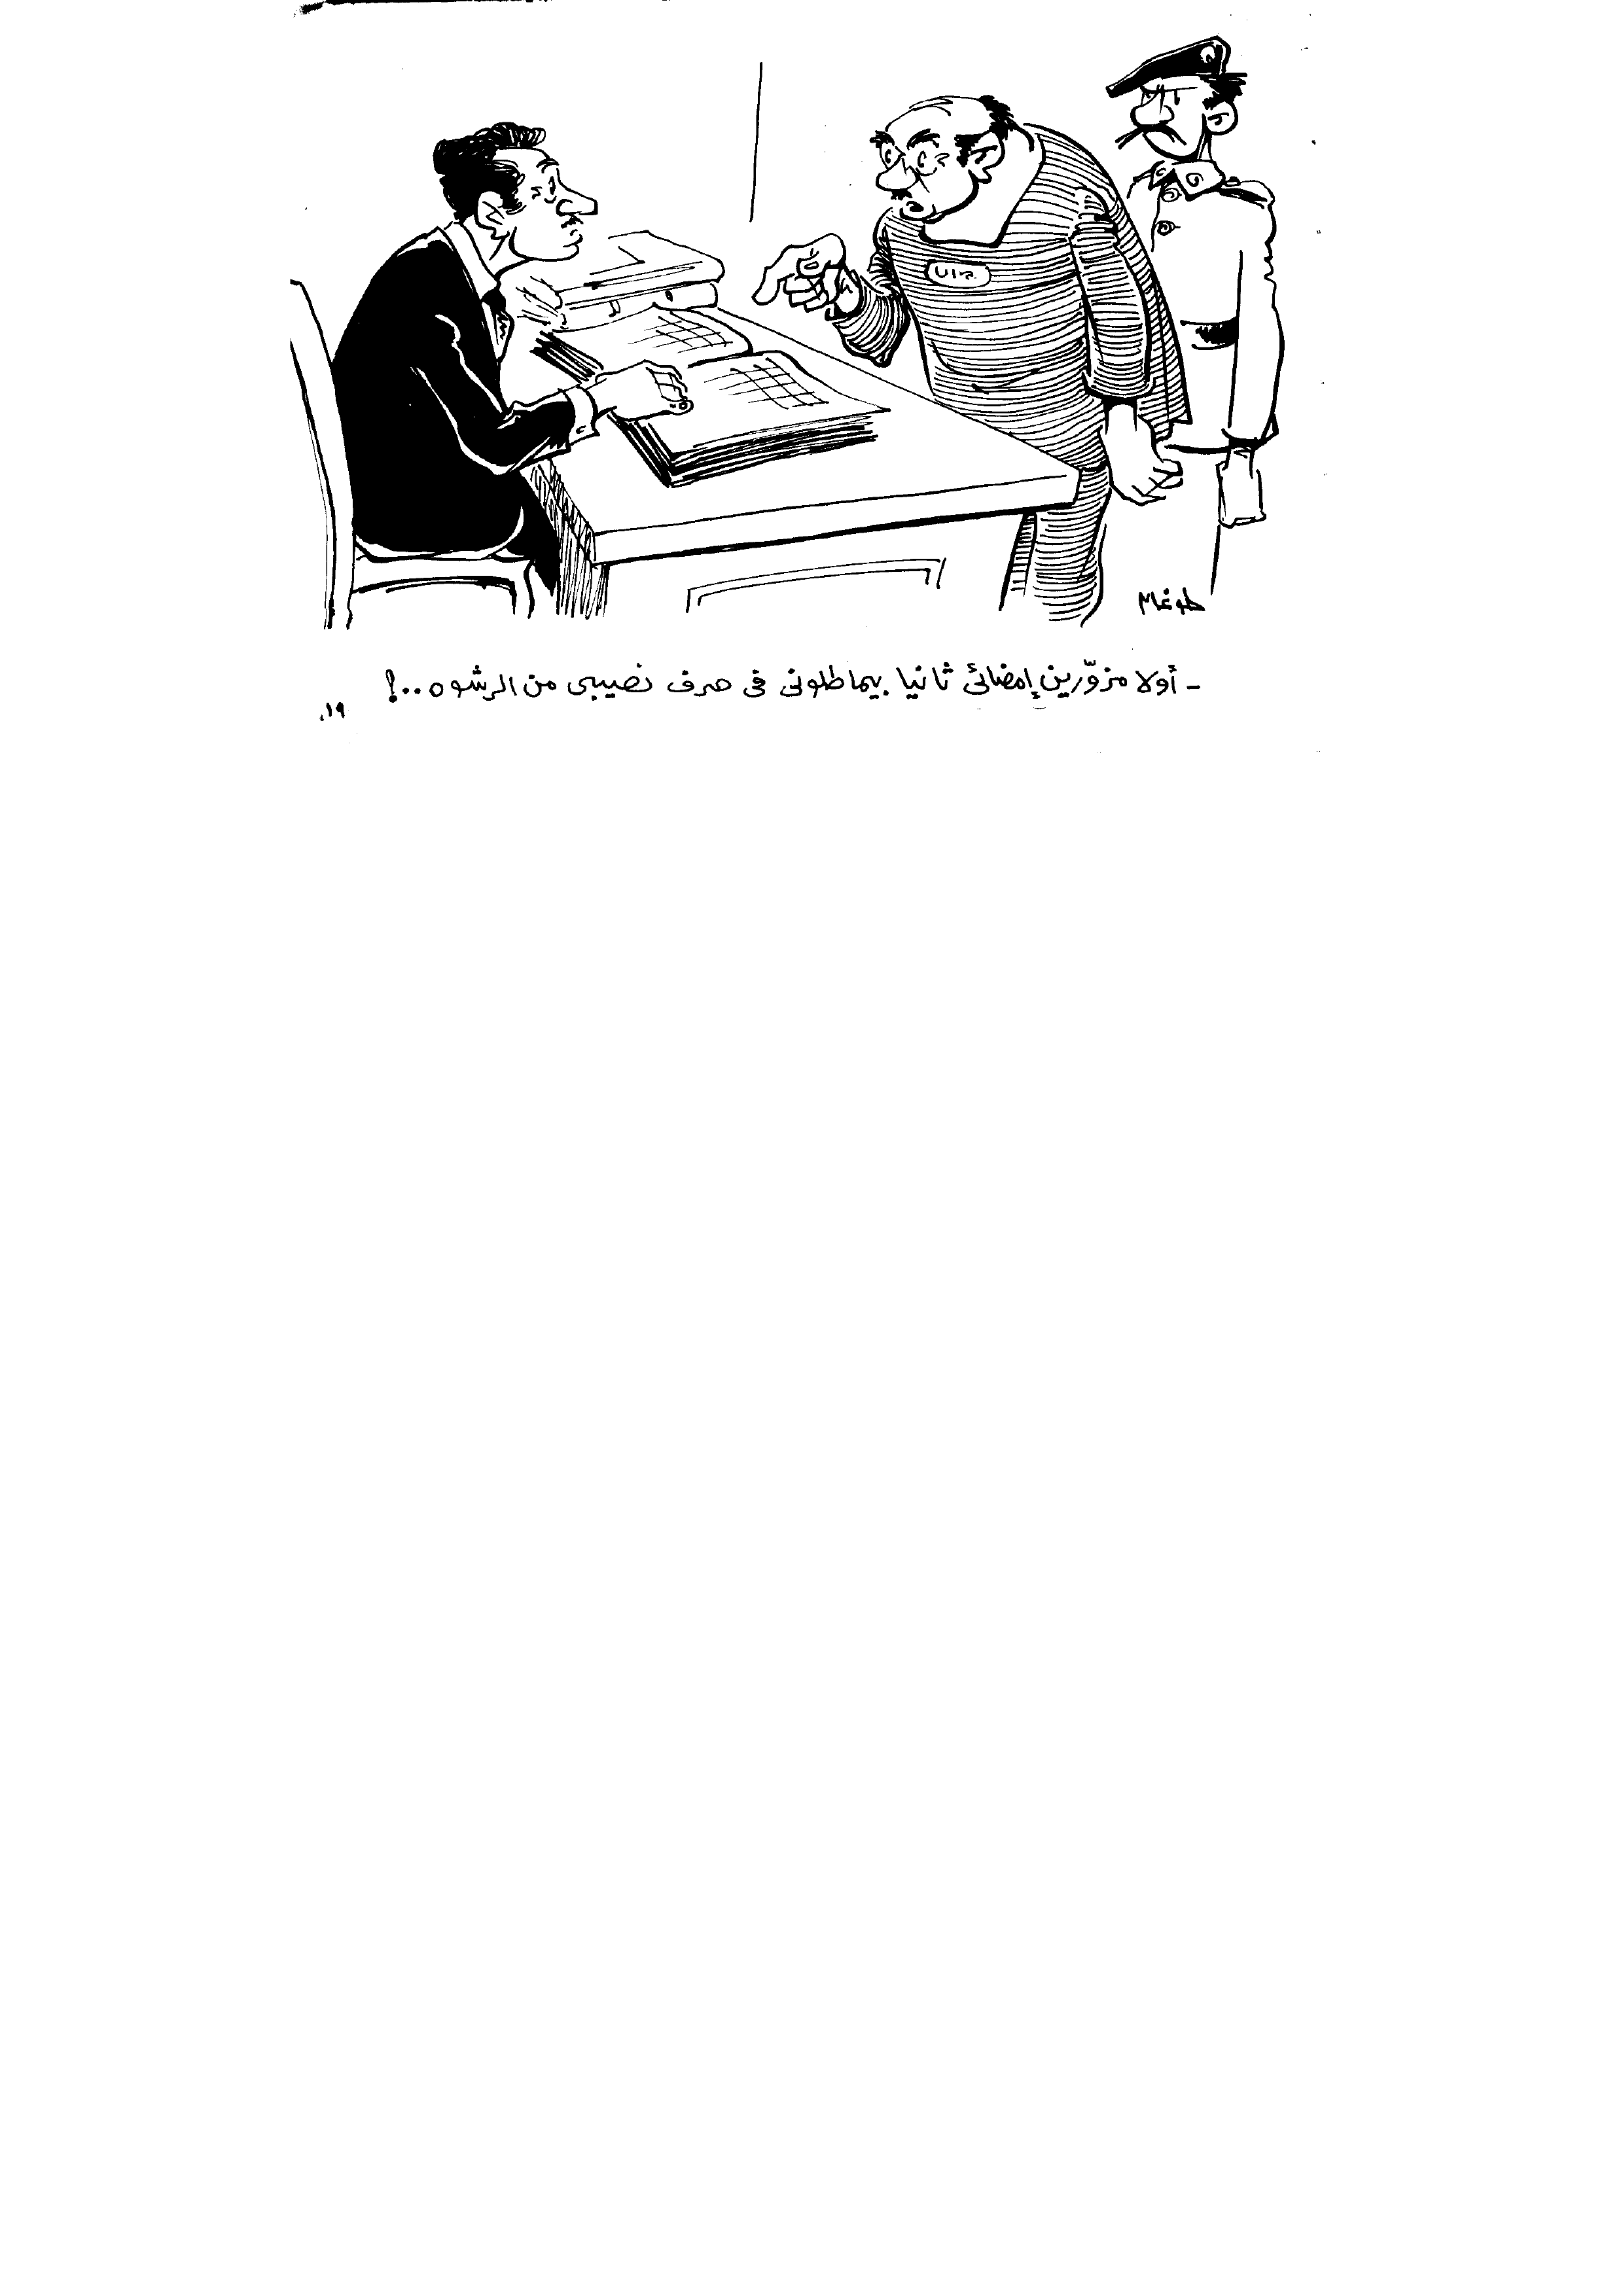 طوغان
- أولا مزوّرين إمضائى ثانيا بيماطلونى فى صرف نصيبى من الرشوه ..!
١٩٠